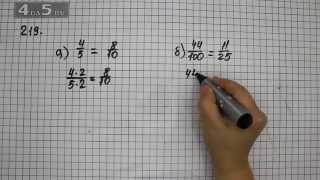 4 на 5 .ru
219.
а) 4/5 = 8/10
4·2/5·2 = 8/10
б) 44/100 = 11/25
44